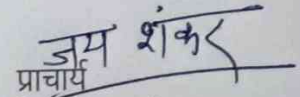 जय शंकर
प्राचार्य